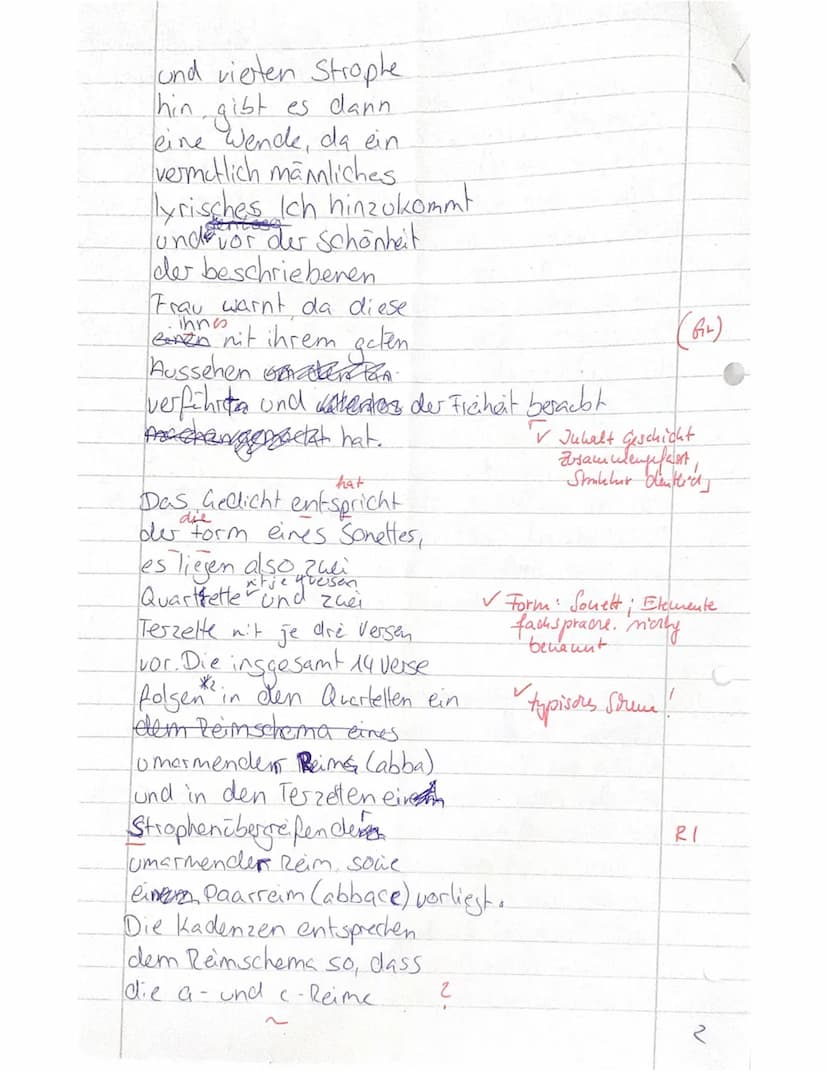 und vierten Strophe
hin, gibt es dann
eine Wende, da ein
vermutlich männliches
lyrisches Ich hinzukommt
und vor der Schönheit
der beschriebenen
Frau warnt, da diese
ihn
einen mit ihrem guten
(Gr)
Aussehen
verführt und der Freiheit beraubt
hat.
√ Inhalt geschickt
zusammengefasst,
Struktur
hat
Das Gedicht entspricht
die
der Form eines Sonettes,
es liegen also zwei
mit je 4 Versen
Quartette und zwei
Terzette mit je drei Versen
√ Form: Sonett; Elemente
fachsprachl. richtig
benannt
vor. Die insgesamt 14 Verse
folgen *2 in den Quartetten ein
√ typisches Schema!
dem Reimschema eines
umarmender Reim (abba)
und in den Terzetten ein
Strophenübergreifender
R1
umarmender Reim, sowie
ein Paarreim (abbacc) vorliegt.
Die Kadenzen entsprechen
dem Reimschema so, dass
die a- und c-Reime
?
2